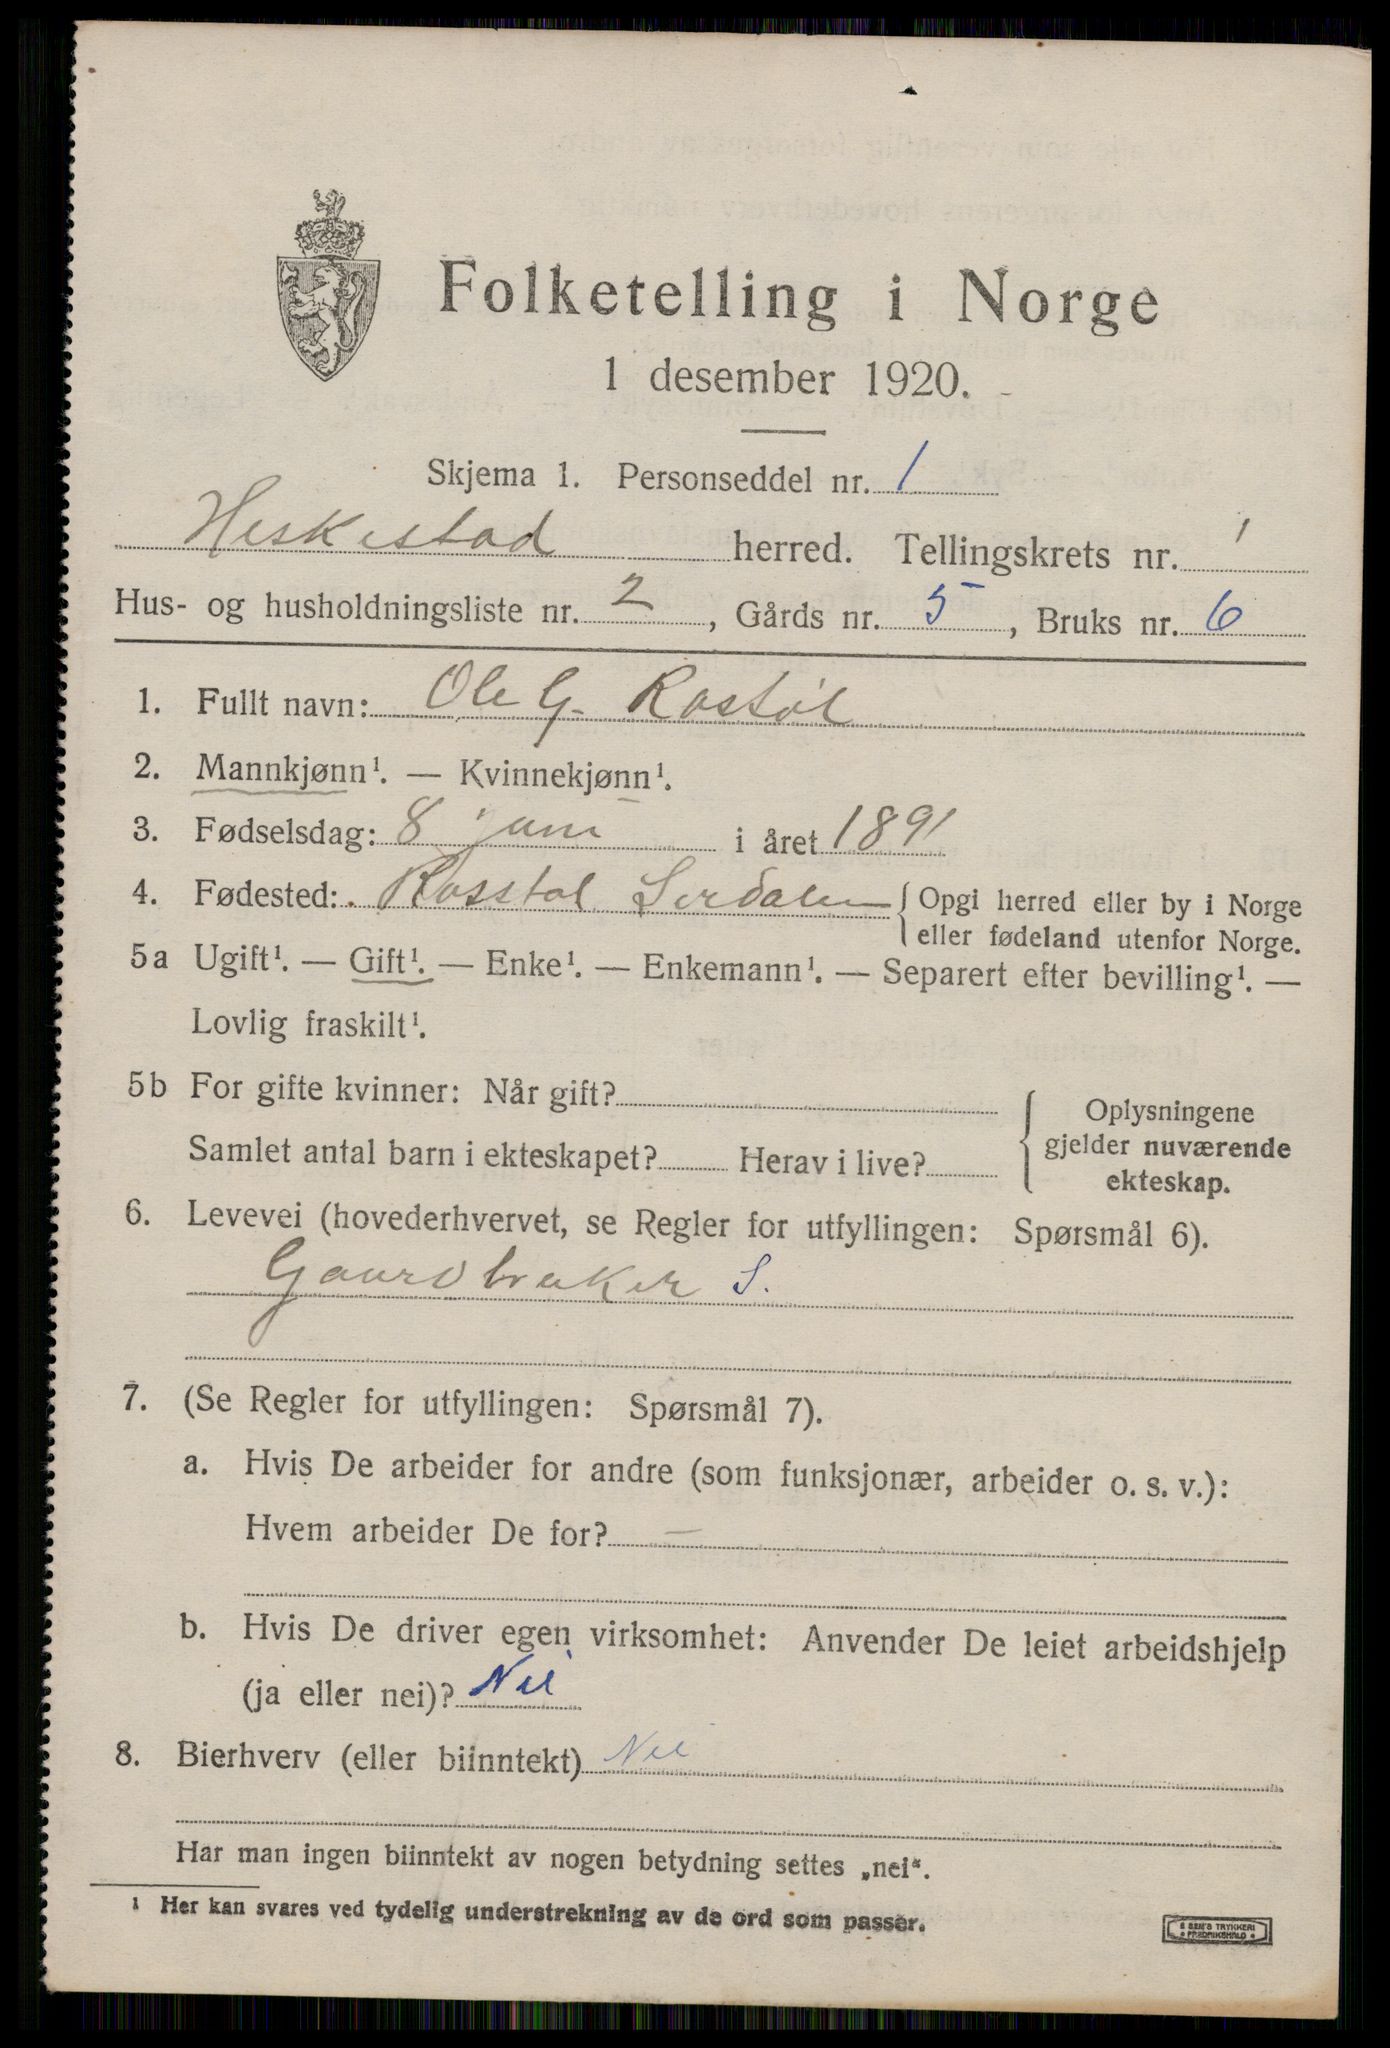 Folketelling i Norge
1 desember 1920.
Skjema 1. Personseddel nr. 1
Heskestad herred. Tellingskrets nr. 1
Hus- og husholdningsliste nr. 2, Gårds nr. 5, Bruks nr. 6
1. Fullt navn: Ole G. Rostøl
2. Mannkjønn¹. — Kvinnekjønn¹.
3. Fødselsdag: 8 juni i året 1891
4. Fødested: Rosstøl Sirdalen { Opgi herred eller by i Norge
eller fødeland utenfor Norge.
5a Ugift¹. — Gift¹. — Enke¹. — Enkemann¹. — Separert efter bevilling¹. —
Lovlig fraskilt¹.
5b For gifte kvinner: Når gift?
Samlet antal barn i ekteskapet? Herav i live?
Oplysningene
gjelder nuværende
ekteskap.
6. Levevei (hovederhvervet, se Regler for utfyllingen: Spørsmål 6).
Gaardbruker S.
7. (Se Regler for utfyllingen: Spørsmål 7).
a. Hvis De arbeider for andre (som funksjonær, arbeider o. s. v.):
Hvem arbeider De for? —
b. Hvis De driver egen virksomhet: Anvender De leiet arbeidshjelp
(ja eller nei)? Nei
8. Bierhverv (eller biinntekt) Nei
Har man ingen biinntekt av nogen betydning settes „nei“.
¹ Her kan svares ved tydelig understrekning av de ord som passer.
E SEM'S TRYKKERI
FREDRIKSHALD